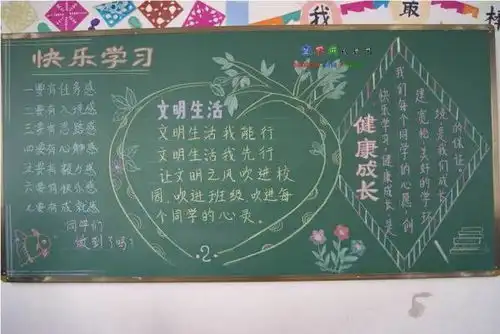 我 最
快乐学习
一要有任务感
二要有入 感
三要有思路感
四要有心静感
五要有毅力感
六要有快乐感
七要有成就感
同学们
做到了吗?
文明生活
文明生活我能行
文明生活我先行
让文明之风吹进校
园、吹进班级、吹进每
个同学的心灵。
2
健康成长
快乐学习,健康成长,是
我们每个同学的心愿,创
建宽松、美好的学习环
境是我们成长
的保证。